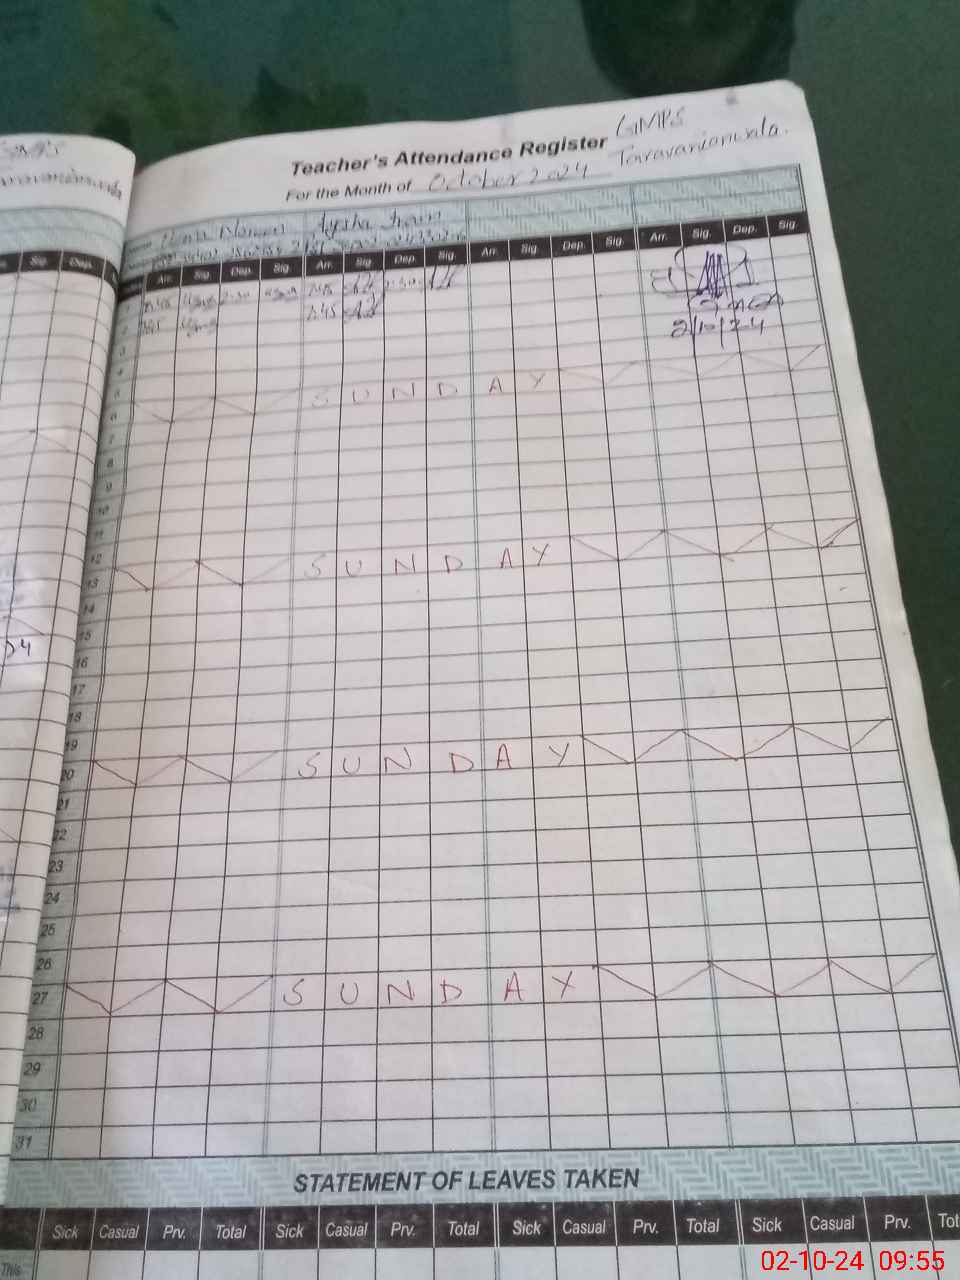 GMPS
Teacher's Attendance Register Taravarianwala.
For the Month of October 2024
Aysha
Arr. Sig. Dep. Sig. Arr. Sig. Dep. Sig. Arr. Sig. Dep. Sig. Arr. Sig. Dep. Sig.
1 7:45 7:45
2 7:45 7:45
2/10/24
3
4
5
6 S U N D A Y
7
8
9
10
11
12
13 S U N D A Y
14
15
16
17
18
19
20 S U N D A Y
21
22
23
24
25
26
27 S U N D A Y
28
29
30
31
STATEMENT OF LEAVES TAKEN
Sick Casual Prv. Total Sick Casual Prv. Total Sick Casual Prv. Total Sick Casual Prv. Tot
This
02-10-24 09:55